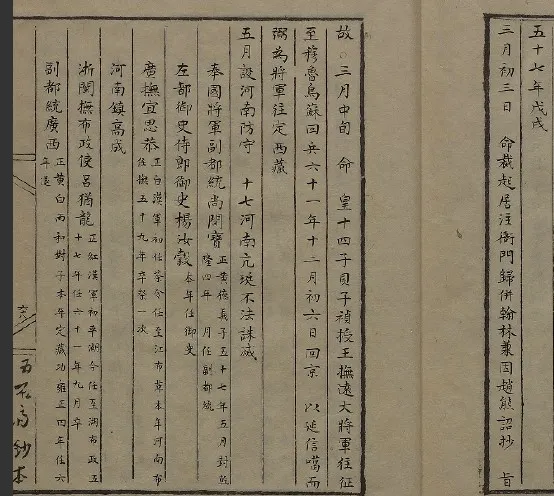 五十七年戊戌
三月初三日　命裁起居注衙門歸併翰林兼因趙熊詔抄　旨
故○三月中旬　命　皇十四子貝子禎授王撫遠大將軍往征
至穆魯烏蘇回兵六十一年十二月初六日回京　以延信噶而
弼為將軍往定西藏
五月設河南防守　十七河南亢珽不法誅滅
奉國將軍副都統尚閏寶
正黃德義子五十七年五月封
隆四年　月任副都統
左都御史侍郎御史楊汝穀
本年任御史
廣撫宜思恭
正白漢軍初任茶令任至江布革本年河南布
任撫五十九年卒祭一次
河南鎮高成
浙閩撫布政使呂猶龍
正紅漢軍初平湖令任至湖南政五
十七年任六十一年九月卒
副都統廣西
正黃白兩和對子本年定藏功雍正四年任六
年退
五石齋鈔本